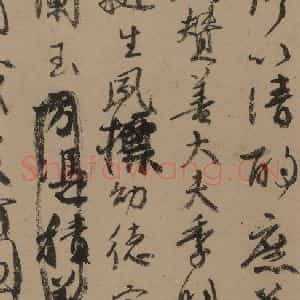 以清酌庶
贊善大夫季明
挺生夙標幼德宗
蘭玉方憑積善
Shufawang.CN